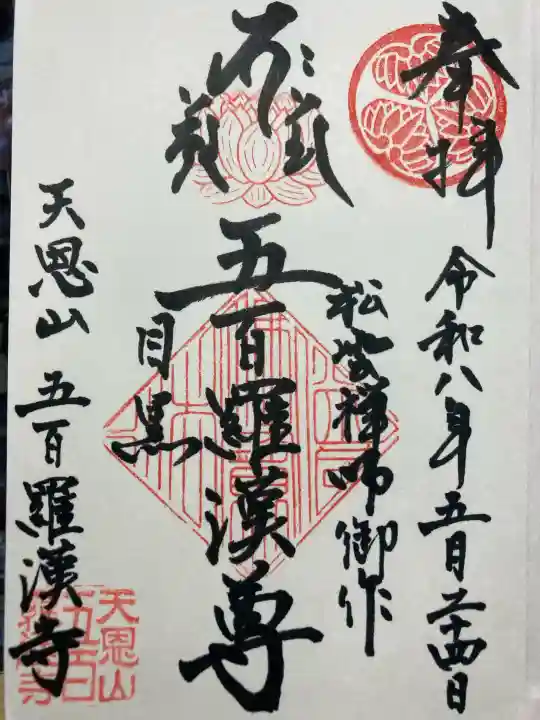 奉拝
令和八年五月二十四日
松雲禅師御作
五百羅漢尊
目黒
天恩山 五百羅漢寺
天恩山
五百
羅漢寺